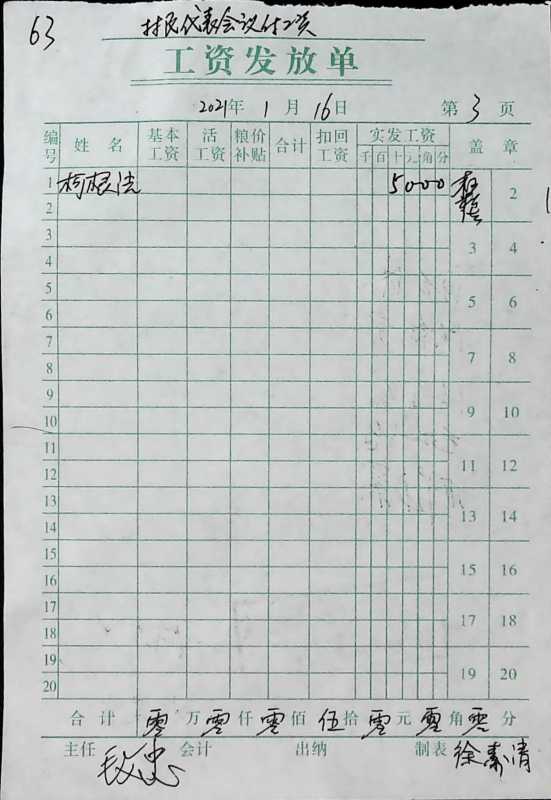 63
村民代表会议付工资
工资发放单
2021年 1月 16日 第3页
编号 姓名 基本工资 活工资 粮价补贴 合计 扣回工资 实发工资 盖章
千 百 十 元 角 分
1 柯根法 5000
2 2
3 3 4
4
5 5 6
6
7 7 8
8
9 9 10
10
11 11 12
12
13 13 14
14
15 15 16
16
17 17 18
18
19 19 20
20
合计 零万零仟零佰伍拾零元零角零分
主任 会计 出纳 制表 徐素清